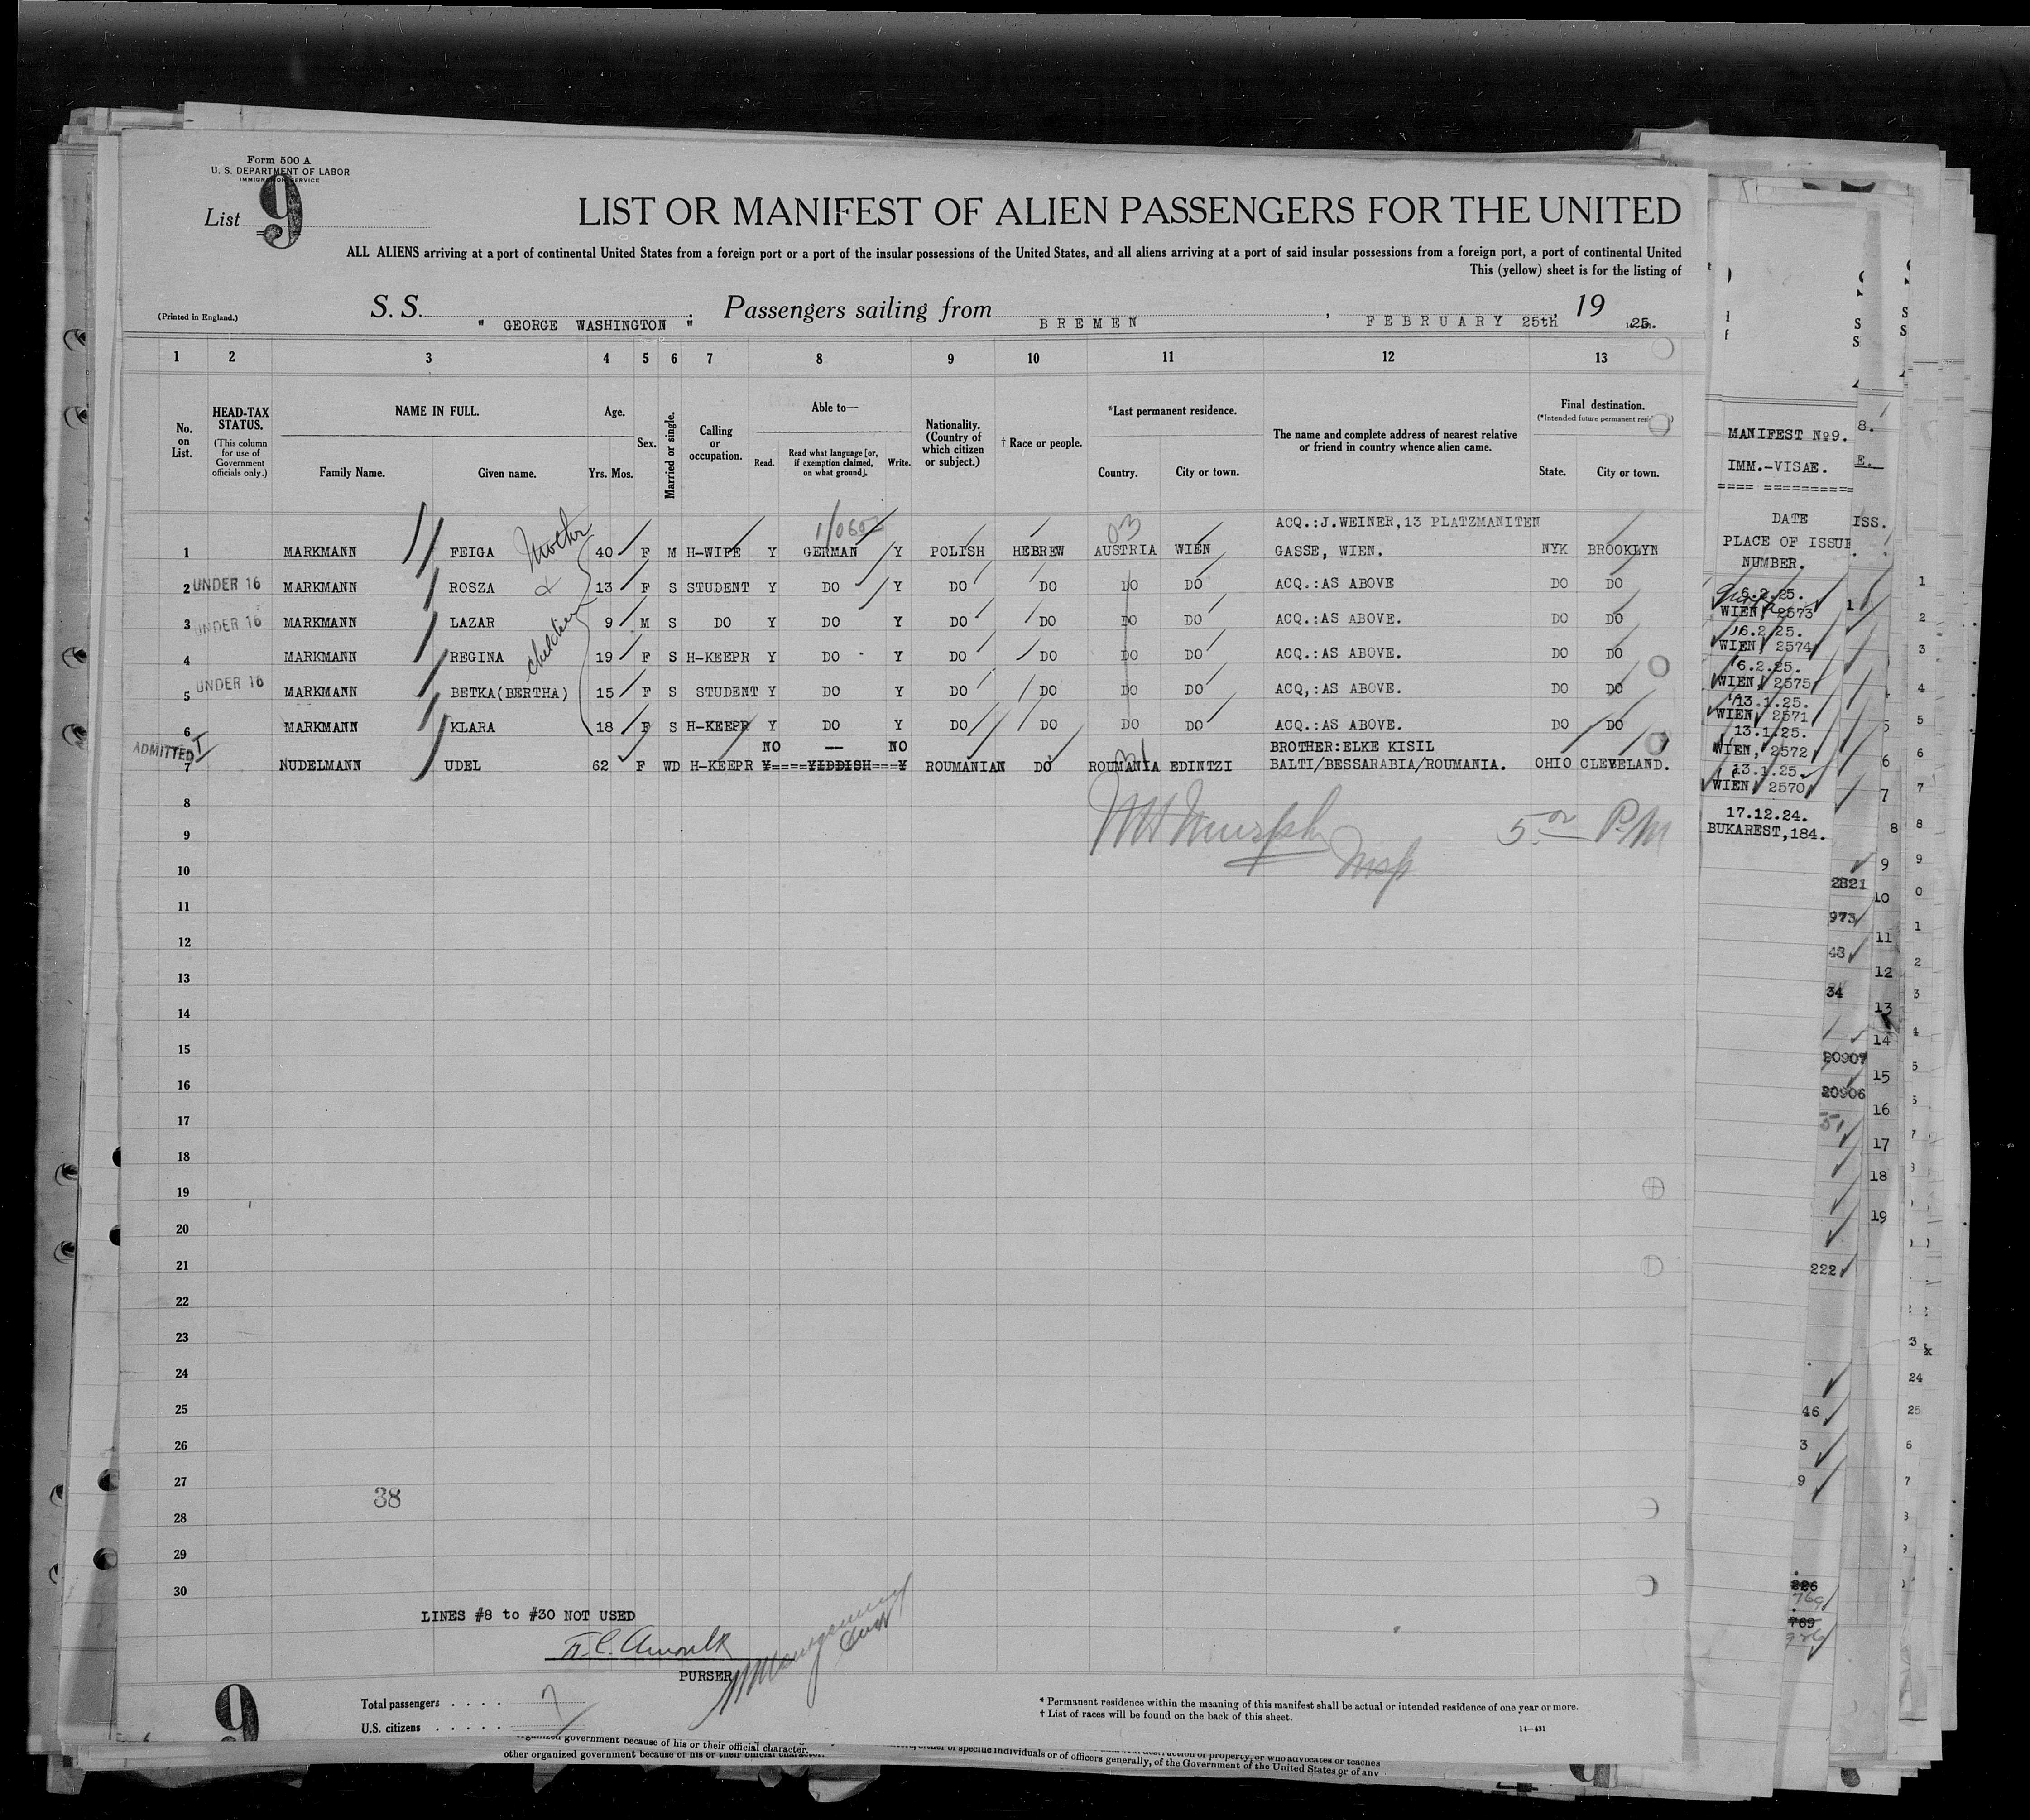 Form 500 A
U. S. DEPARTMENT OF LABOR
IMMIGRATION SERVICE
List 9
LIST OR MANIFEST OF ALIEN PASSENGERS FOR THE UNITED
ALL ALIENS arriving at a port of continental United States from a foreign port or a port of the insular possessions of the United States, and all aliens arriving at a port of said insular possessions from a foreign port, a port of continental United
This (yellow) sheet is for the listing of
(Printed in England.)
S. S. " GEORGE WASHINGTON " Passengers sailing from BREMEN, FEBRUARY 25th, 1925.
1 2 3 4 5 6 7 8 9 10 11 12 13
No. on List.
HEAD-TAX STATUS.
(This column for use of Government officials only.)
NAME IN FULL.
Family Name. Given name.
Age.
Yrs. Mos.
Sex.
Married or single.
Calling or occupation.
Able to—
Read. Read what language [or, if exemption claimed, on what ground]. Write.
Nationality. (Country of which citizen or subject.)
† Race or people.
*Last permanent residence.
Country. City or town.
The name and complete address of nearest relative or friend in country whence alien came.
Final destination.
(*Intended future permanent
State. City or town.
Mother & children
03
ACQ.:J.WEINER,13 PLATZMANITEN
1 MARKMANN FEIGA 40 F M H-WIFE Y GERMAN Y POLISH HEBREW AUSTRIA WIEN GASSE, WIEN. NYK BROOKLYN
2 UNDER 16 MARKMANN ROSZA 13 F S STUDENT Y DO Y DO DO DO DO ACQ.:AS ABOVE DO DO
3 UNDER 16 MARKMANN LAZAR 9 M S DO Y DO Y DO DO DO DO ACQ.:AS ABOVE. DO DO
4 MARKMANN REGINA 19 F S H-KEEPR Y DO Y DO DO DO DO ACQ.:AS ABOVE. DO DO
5 UNDER 16 MARKMANN BETKA(BERTHA) 15 F S STUDENT Y DO Y DO DO DO DO ACQ,:AS ABOVE. DO DO
6 MARKMANN KLARA 18 F S H-KEEPR Y DO Y DO DO DO DO ACQ.:AS ABOVE. DO DO
NO -- NO BROTHER:ELKE KISIL
7 ADMITTED NUDELMANN UDEL 62 F WD H-KEEPR Y====YIDDISH===Y ROUMANIAN DO ROUMANIA EDINTZI BALTI/BESSARABIA/ROUMANIA. OHIO CLEVELAND.
8
9
10
11
12
13
14
15
16
17
18
19
20
21
22
23
24
25
26
27
28
29
30
MH Murphy
Insp
5 P.M
38
LINES #8 to #30 NOT USED
PURSER
9
Total passengers . . . . 7
U.S. citizens . . . . .
* Permanent residence within the meaning of this manifest shall be actual or intended residence of one year or more.
† List of races will be found on the back of this sheet.
14—431
MANIFEST No9.
IMM.-VISAE.
==== =========
DATE
PLACE OF ISSUE
NUMBER.
6.2.25.
WIEN, 2573
6.2.25.
WIEN, 2574
6.2.25.
WIEN, 2575
13.1.25.
WIEN, 2571
13.1.25.
WIEN, 2572
13.1.25.
WIEN, 2570
17.12.24.
BUKAREST,184.
ISS.
2821
973
48
34
20907
20906
51
222
46
3
9
226
769
769
organized government because of his or their official character.
other organized government because of his or their official character.
of specific individuals or of officers generally, of the Government of the United States or of any